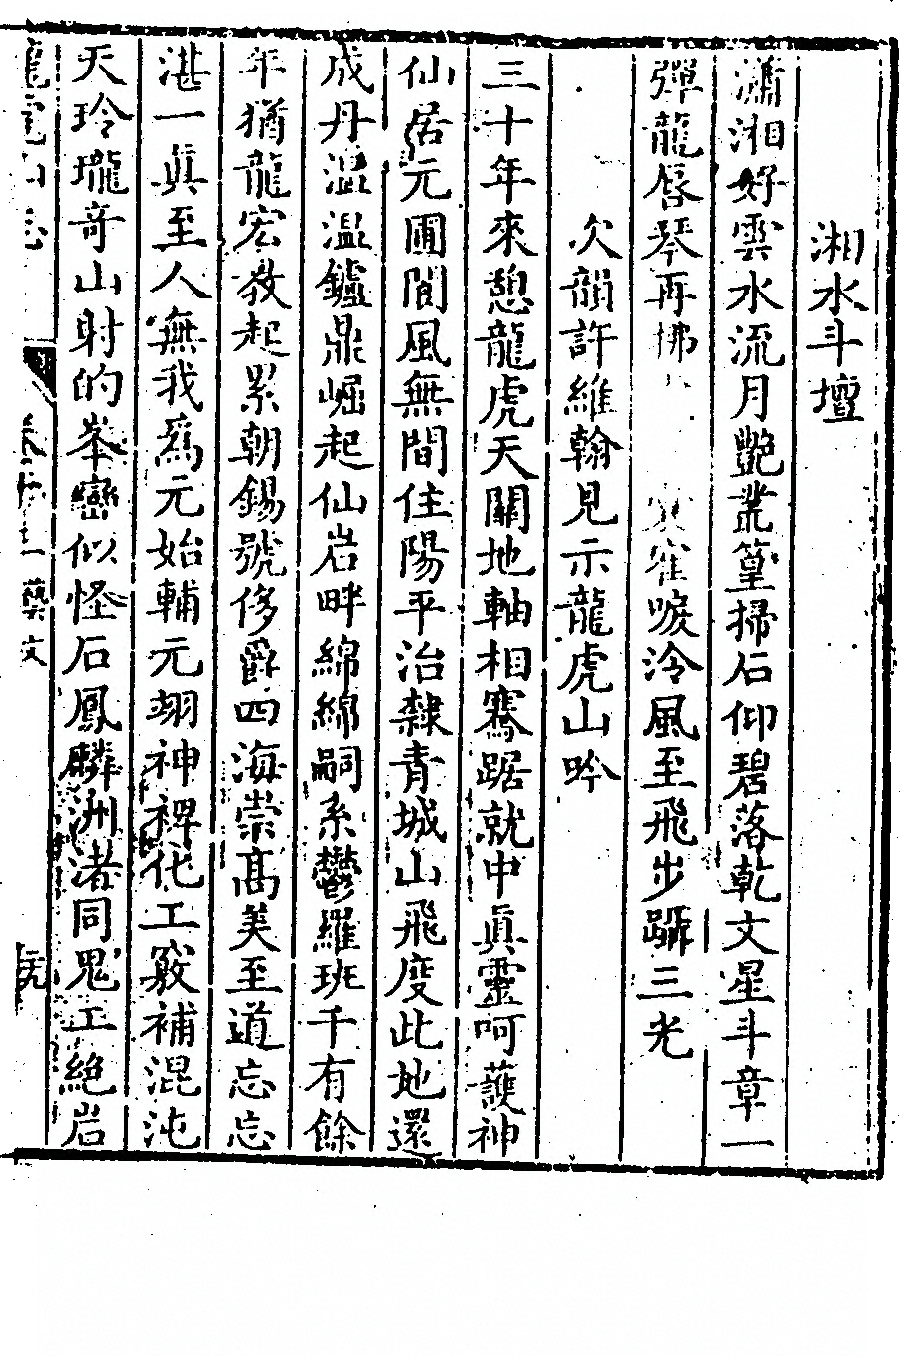 湘水斗壇
瀟湘好雲水流月艷叢篁掃石仰碧落乾文星斗章一
彈龍唇琴再拂寉唳泠風至飛步躡三光
次韻許維翰見示龍虎山吟
三十年來憩龍虎天關地軸相騫踞就中眞靈呵護神
仙居元圃閬風無間住陽平治隸青城山飛度此地還
成丹溫溫鑪鼎崛起仙岩畔綿綿嗣系鬱羅班千有餘
年猶龍宏教起累朝錫號侈爵四海崇高美至道忘忘
湛一眞至人無我爲元始輔元翊神禆化工竅補混沌
天玲瓏奇山射的峯巒似怪石鳳麟洲渚同鬼工絶岩
龍虎山志
藝文